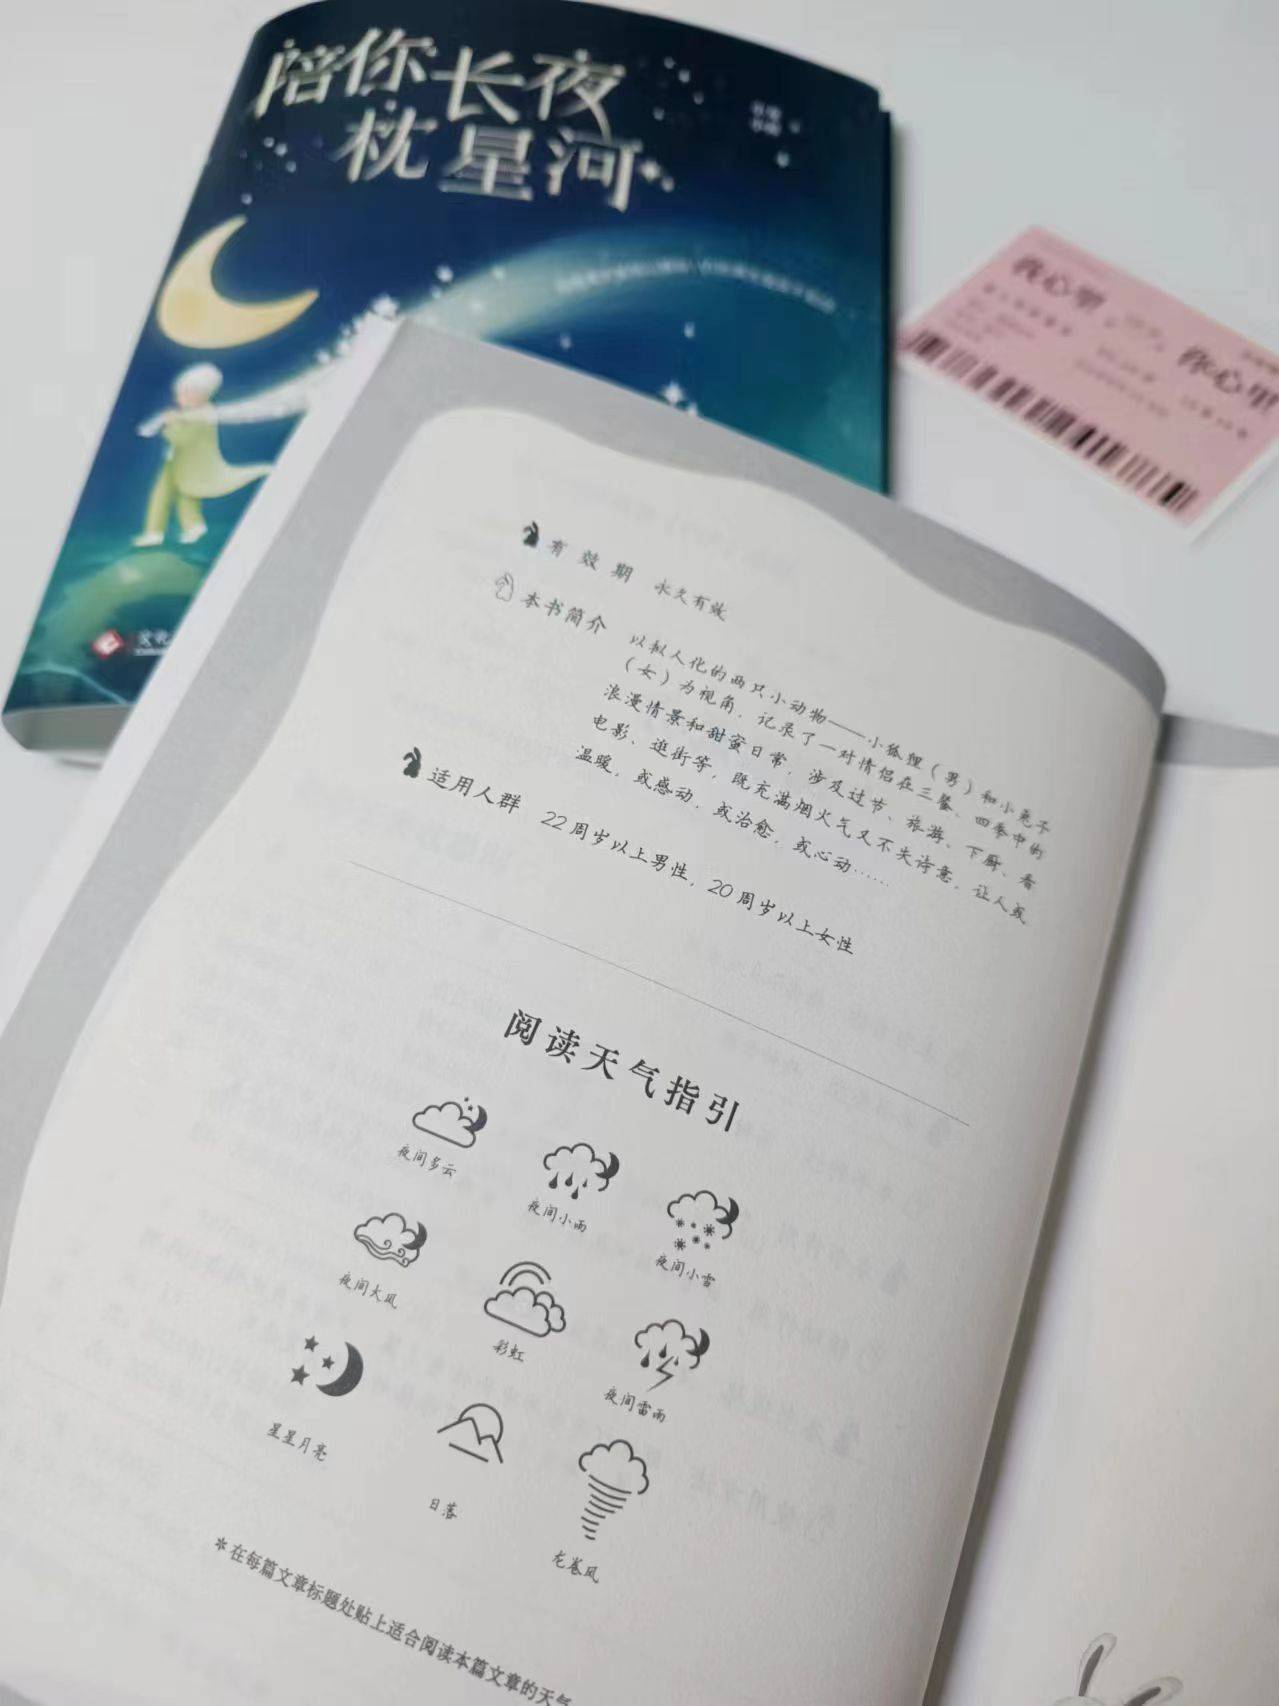 陪你长夜
枕星河
我心里
你心里
有效期 永久有效
本书简介 以拟人化的两只小动物——小狐狸（男）和小兔子
（女）为视角，记录了一对情侣在三餐、四季中的
浪漫情景和甜蜜日常，涉及过节、旅游、下厨、看
电影、逛街等，既充满烟火气又不失诗意，让人或
温暖，或感动，或治愈，或心动……
适用人群 22周岁以上男性，20周岁以上女性
阅读天气指引
夜间多云
夜间小雨
夜间小雪
夜间大风
彩虹
夜间雷雨
星星月亮
日落
龙卷风
*在每篇文章标题处贴上适合阅读本篇文章的天气